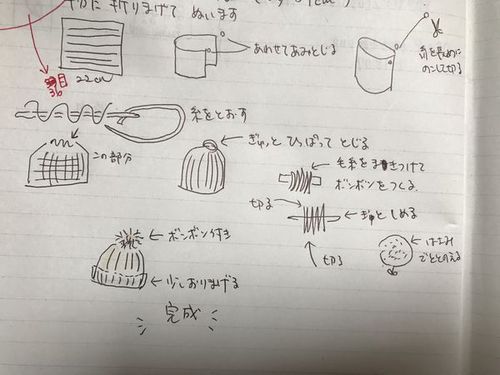 折りまげて ぬいます
36目
22cm
あわせてあみとじる
糸を長めに
のこして切る
糸をとおす
この部分
ぎゅっと ひっぱって とじる
毛糸をまきつけて
ボンボンをつくる
切る
ぎゅっと しめる
切る
はさみ
でととのえる
ボンボン付き
少しおりまげる
完成